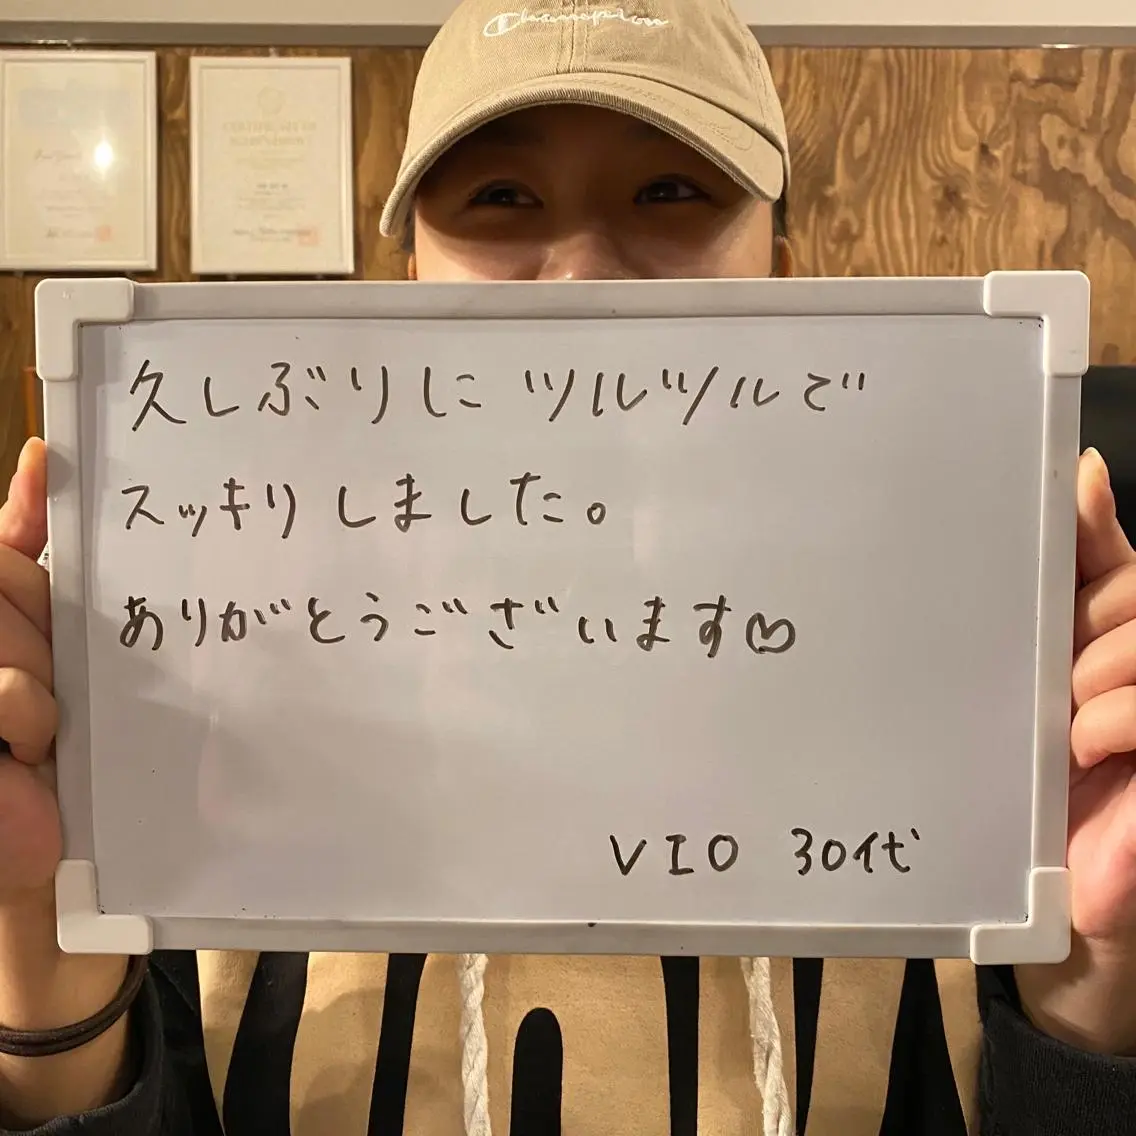 Champion
CERTIFICATE OF
久しぶりに ツルツルで
スッキリしました。
ありがとうございます♡
VIO 30代